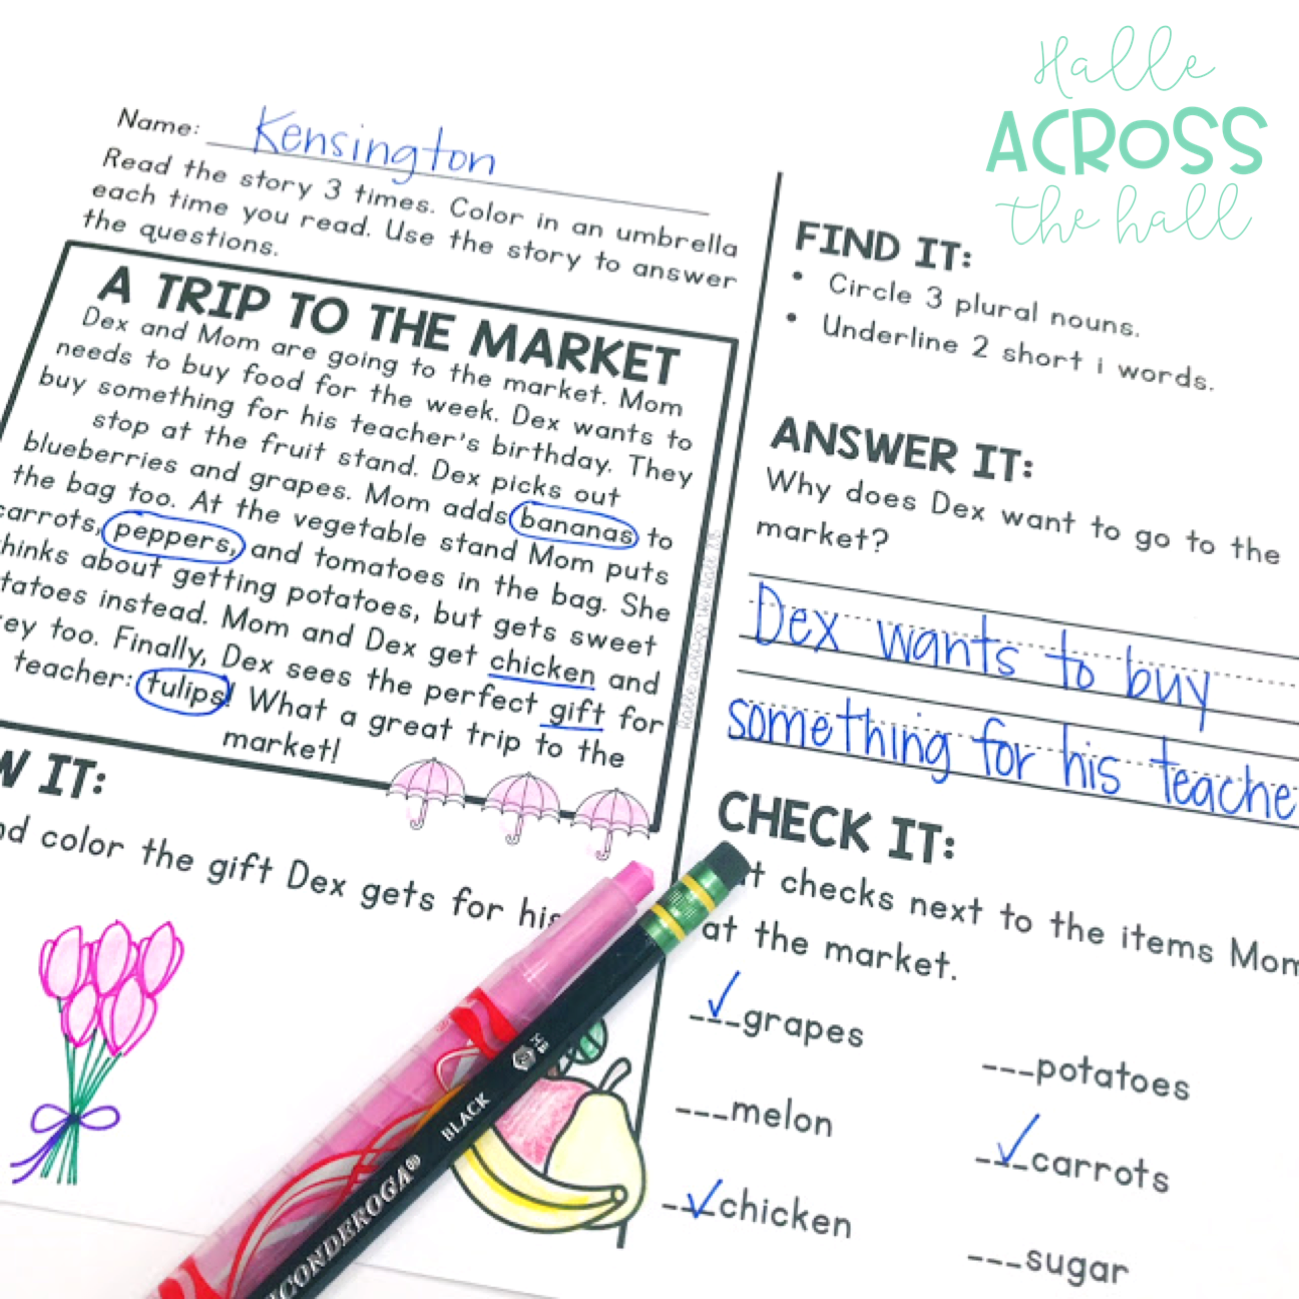 Halle
ACROSS
the hall
Name: Kensington
Read the story 3 times. Color in an umbrella
each time you read. Use the story to answer
the questions.
A TRIP TO THE MARKET
Dex and Mom are going to the market. Mom
needs to buy food for the week. Dex wants to
buy something for his teacher's birthday. They
stop at the fruit stand. Dex picks out
blueberries and grapes. Mom adds bananas to
the bag too. At the vegetable stand Mom puts
carrots, peppers, and tomatoes in the bag. She
thinks about getting potatoes, but gets sweet
tatoes instead. Mom and Dex get chicken and
ey too. Finally, Dex sees the perfect gift for
teacher: tulips! What a great trip to the
market!
halle across the hall
W IT:
nd color the gift Dex gets for his
FIND IT:
• Circle 3 plural nouns.
• Underline 2 short i words.
ANSWER IT:
Why does Dex want to go to the
market?
Dex wants to buy
something for his teache
CHECK IT:
checks next to the items Mom
at the market.
✓grapes
___potatoes
___melon
✓carrots
✓chicken
___sugar
TICONDEROGA® BLACK HB